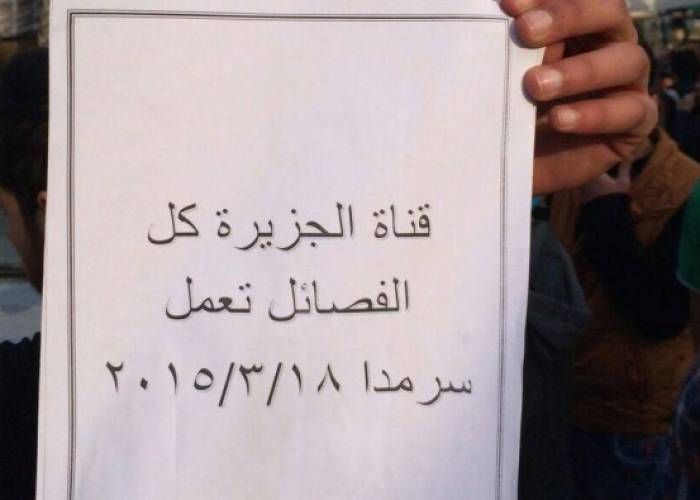 قناة الجزيرة كل
الفصائل تعمل
سرمدا ٢٠١٥/٣/١٨